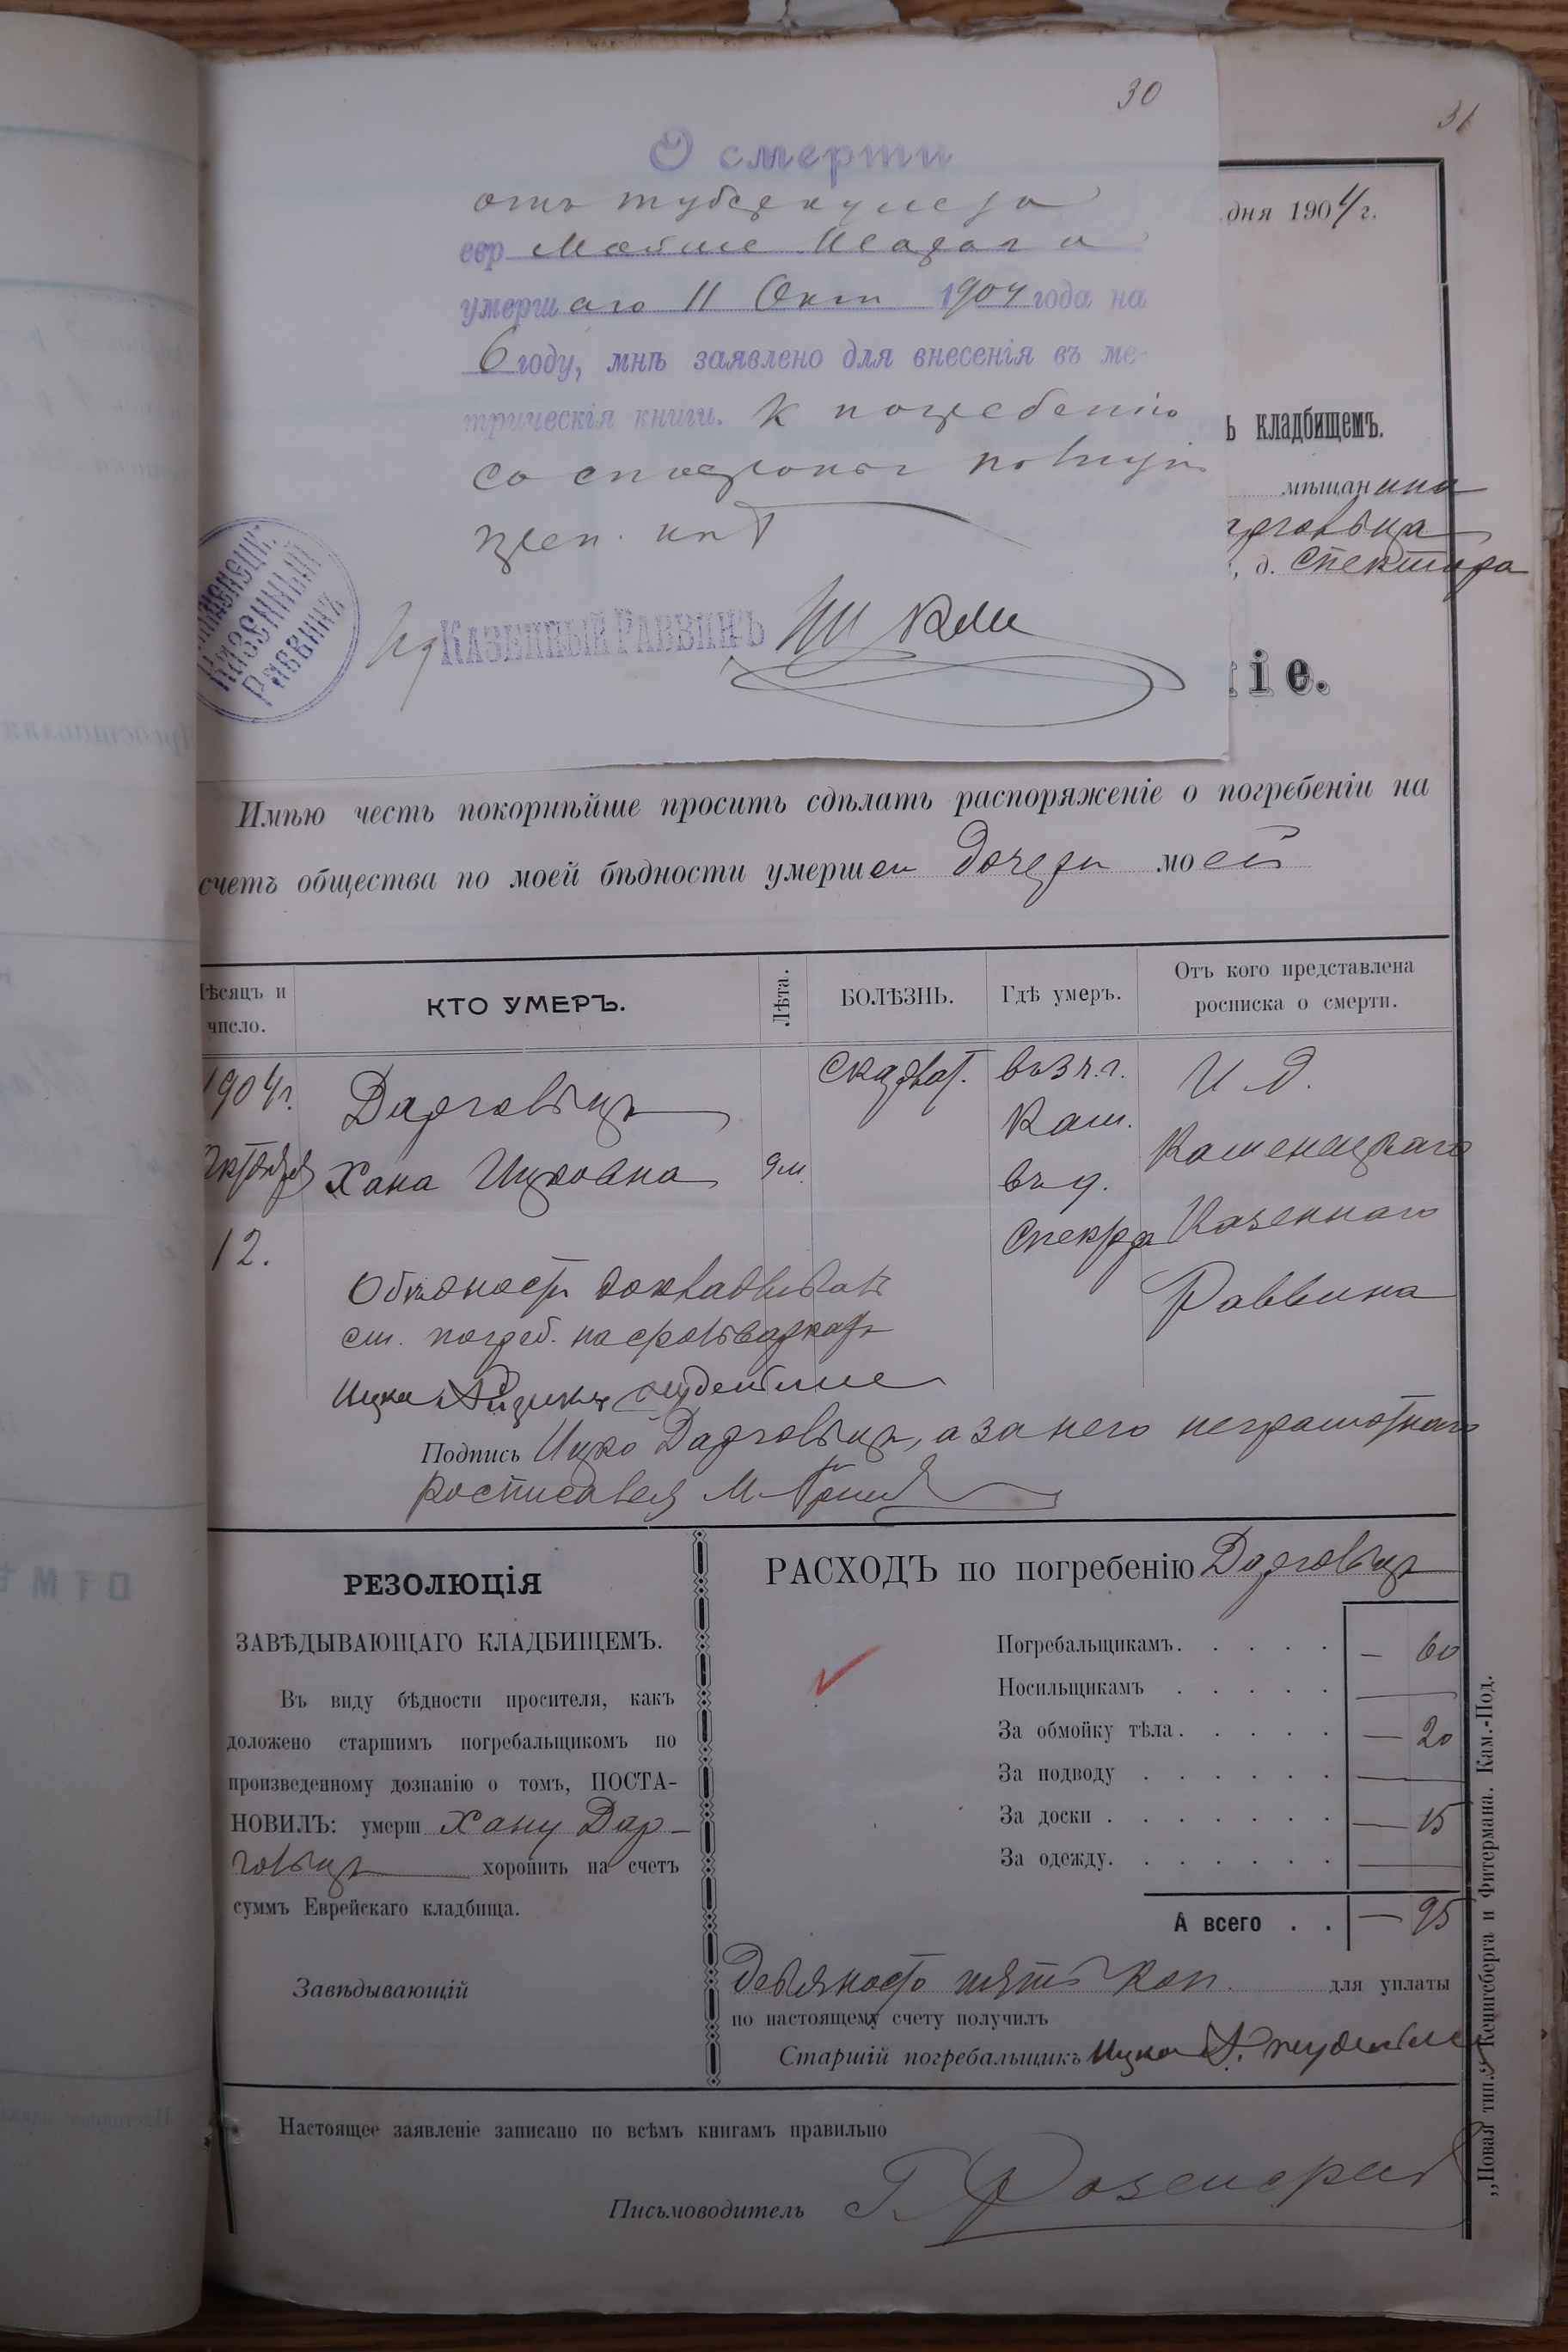 30
О смерти
отъ туберкулеза
евр Мойше
умершаго 11 Окт 1904 года на
6 году, мнѣ заявлено для внесенія въ ме-
трическія книги. К погребенію
со стороны
КАЗЕННЫЙ РАВВИНЪ
КАЗЕННЫЙ
РАВВИНЪ
31
дня 1904 г.
ъ кладбищемъ.
мѣщанина
рговица
, д. Спектора
іе.
Имѣю честь покорнѣйше просить сдѣлать распоряженіе о погребеніи на
счетъ общества по моей бѣдности умершеи дочери моей
ѣсяцъ и число.
КТО УМЕРЪ.
Лѣта.
БОЛѢЗНЬ.
Гдѣ умеръ.
Отъ кого представлена росписка о смерти.
1904г. Октября 12.
Дарговицъ
Хана Ицковна
9 м.
Скарлат.
въ 3 ч. г. Кам. въ д.
И Д. Каменецкаго Казеннаго Раввина
О бѣдности докладывалъ
ст. погреб.
Ицко
Подпись Ицко Дарговицъ, а за него неграмотнаго
росписался М.
РЕЗОЛЮЦІЯ
ЗАВѢДЫВАЮЩАГО КЛАДБИЩЕМЪ.
Въ виду бѣдности просителя, какъ
доложено старшимъ погребальщикомъ по
произведенному дознанію о томъ, ПОСТА-
НОВИЛЪ: умерш Хану Дар-
говицъ хоронить на счетъ
суммъ Еврейскаго кладбища.
Завѣдывающій
РАСХОДЪ по погребенію Дарговицъ
Погребальщикамъ. . . . . — 60
Носильщикамъ . . . . . —
За обмойку тѣла. . . . . — 20
За подводу . . . . . . —
За доски . . . . . . . — 15
За одежду. . . . . . . —
А всего . . — 95
Девяносто пять коп. для уплаты
по настоящему счету получилъ
Старшій погребальщикъ Ицко
Настоящее заявленіе записано по всѣмъ книгамъ правильно
Письмоводитель Г.
„Новая тип.“ Кенигсберга и Фитермана. Кам.-Под.